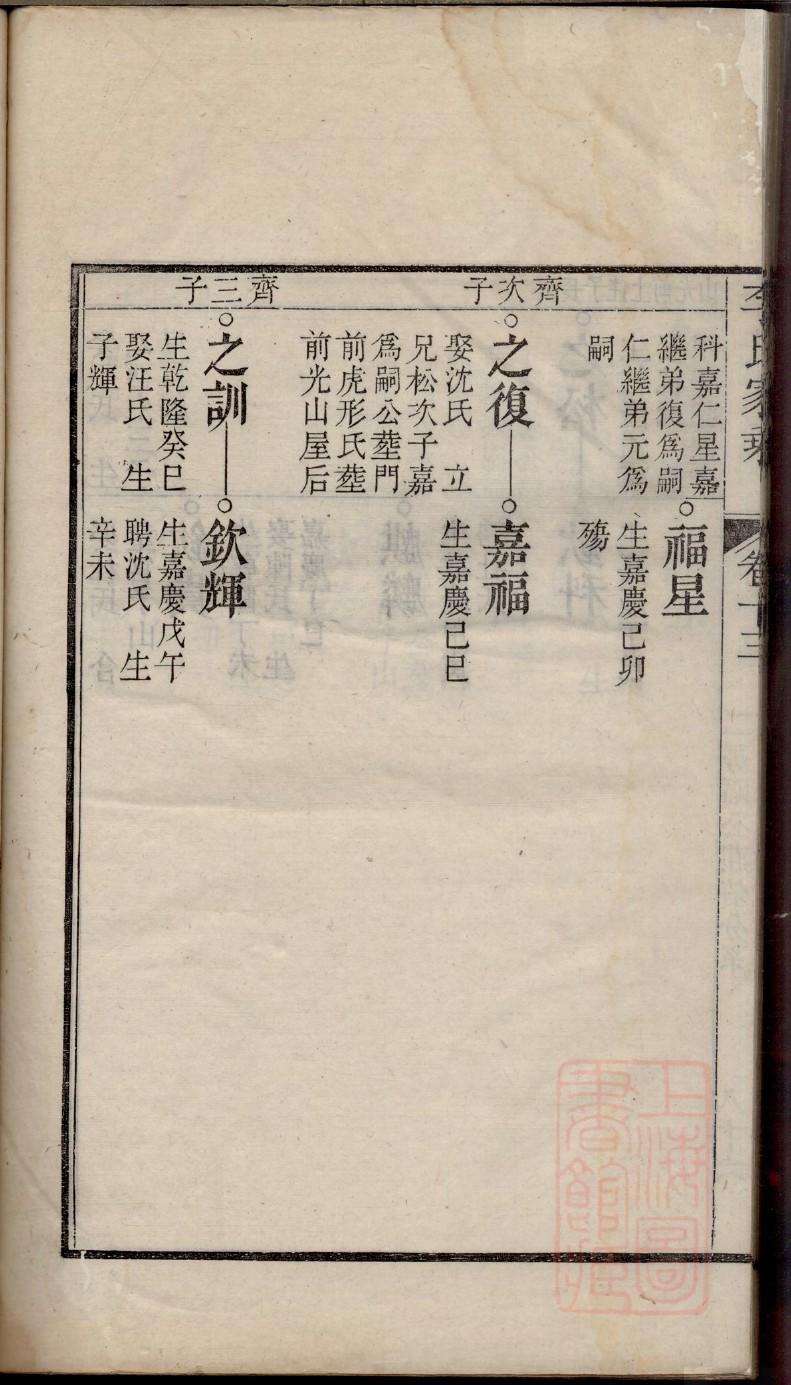 李氏家乘
卷十三
科嘉仁星嘉
繼弟復爲嗣
仁繼弟元爲
嗣
福星
生嘉慶己卯
殤
齊次子
之復
娶沈氏 立
兄松次子嘉
爲嗣公塟門
前虎形氏塟
前光山屋后
嘉福
生嘉慶己巳
齊三子
之訓
生乾隆癸巳
娶汪氏 生
子輝
欽輝
生嘉慶戊午
聘沈氏 生
辛未
上海圖
書館藏